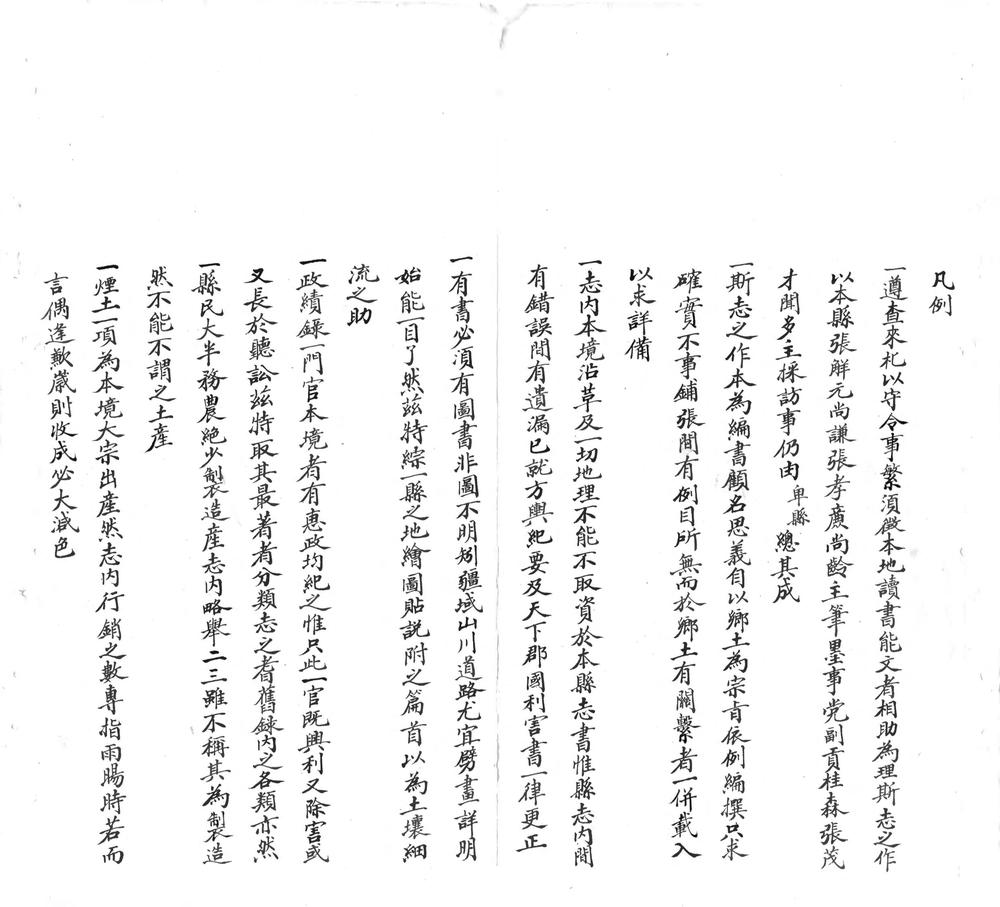 凡例
一遵查來札以守令事繁須徵本地讀書能文者相助為理斯志之作
以本縣張解元尚謙張孝廉尚齡主筆墨事党副貢桂森張茂
才聞多主採訪事仍由卑縣總其成
一斯志之作本為編書顧名思義自以鄉土為宗旨依例編撰只求
確實不事鋪張間有例目所無而於鄉土有關繫者一併載入
以求詳備
一志內本境沿革及一切地理不能不取資於本縣志書惟縣志內間
有錯誤間有遺漏已就方輿紀要及天下郡國利害書一律更正
一有書必須有圖書非圖不明矧疆域山川道路尤宜劈畫詳明
始能一目了然茲特綜一縣之地繪圖貼說附之篇首以為土壤細
流之助
一政績錄一門官本境者有惠政均紀之惟只此一官既興利又除害或
又長於聽訟茲特取其最著者分類志之耆舊錄內之各類亦然
一縣民大半務農絕少製造產志內略舉二三雖不稱其為製造
然不能不謂之土產
一煙土一項為本境大宗出產然志內行銷之數專指雨暘時若而
言偶逢歉歲則收成必大減色